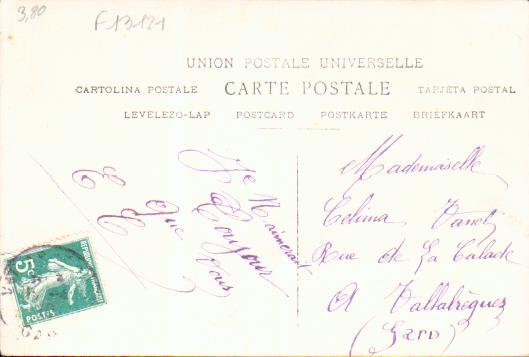 3,80
F13-121
UNION POSTALE UNIVERSELLE
CARTOLINA POSTALE CARTE POSTALE TARJETA POSTAL
LEVELEZO-LAP POSTCARD POSTKARTE BRIEFKAART
Je N'aimerait
Toujour
Que Vous
Mademoiselle
Celima
Rue de La Calade
A Vallabrègues
(Gard)
RÉPUBLIQUE FRANÇAISE
5c
POSTES